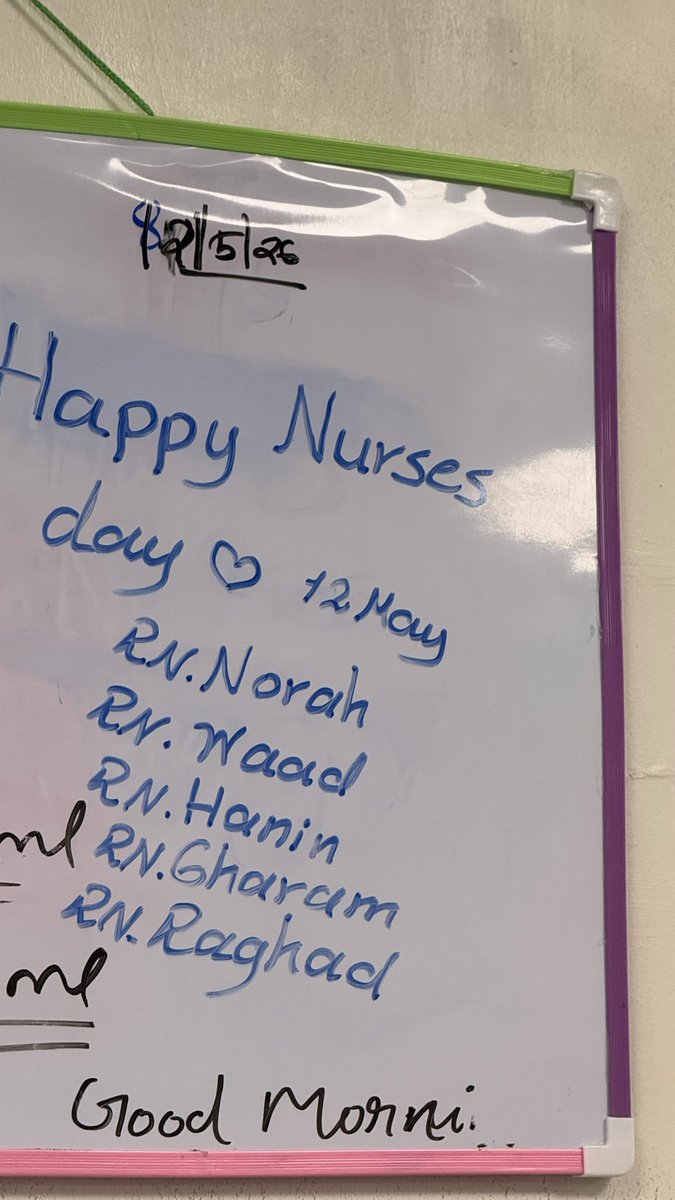 12/5/26
Happy Nurses
day ♡ 12 May
RN. Norah
RN. Waad
RN. Hanin
ml
RN. Gharam
RN. Raghad
ml
Good Morni..